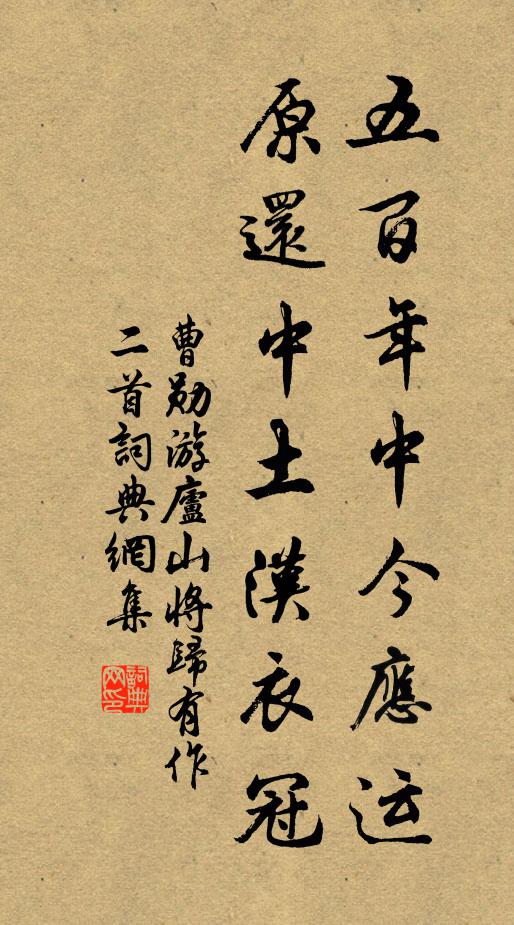 五百年中今應运
原還中土漢衣冠
曹勛游廬山將歸有作
二首詞典網集
詞典网印